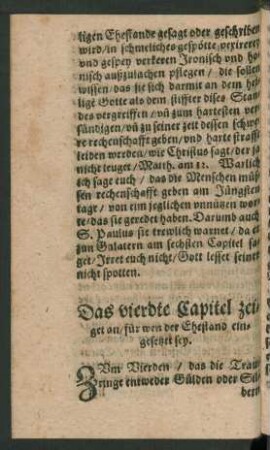 ligen Ehestande gesagt oder geschriben
wird / in schmeliches gespötte vexirerey
vnd gespey verkeren Jronisch vnd ho-
nisch außzulachen pflegen / die sollen
wissen / das sie sich darmit an dem hei-
lige Gotte als dem stiffter dises Stan-
des vergreiffen / vñ zum hartesten ver-
sündigen / vñ zu seiner zeit dessen schwe-
re rechenschafft geben / vnd harte straffe
leiden werden / wie Christus sagt / der ja
nicht leuget / Matth. am 12. Warlich
ich sage euch / das die Menschen müs-
sen rechenschafft geben am Jüngsten
tage / von eim jeglichen vnnützen wor-
te / das sie geredet haben. Darumb auch
S. Paulus sie trewlich warnet / da er
zun Galatern am sechsten Capitel sa-
get / Jrret euch nicht / Gott lesset seiner
nicht spotten.
Das vierdte Capitel zei-
get an / für wen der Ehestand ein-
gesetzt sey.
ZVm Vierden / das die Traw
Ringe entweder Gülden oder Sil-
bern